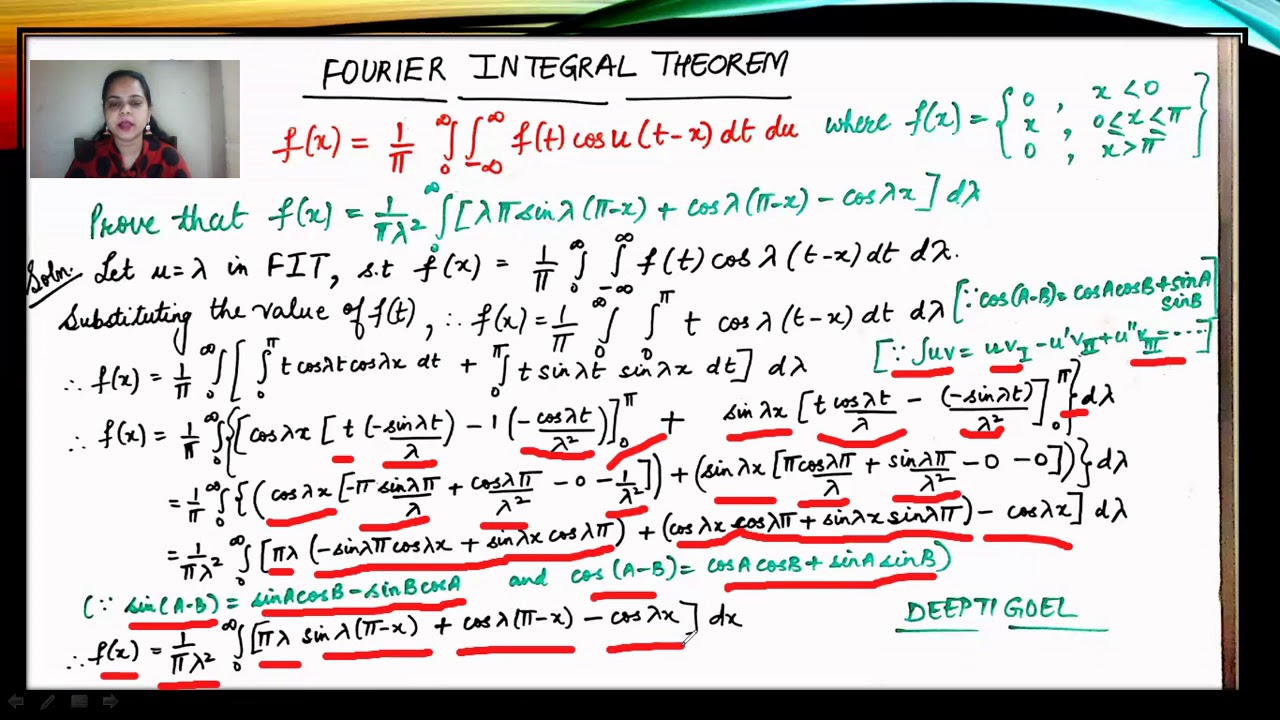 FOURIER INTEGRAL THEOREM
f(x) = 1/π ∫₀^∞ ∫₋∞^∞ f(t) cos u (t-x) dt du where f(x) = { 0 , x < 0
x , 0 ≤ x ≤ π
0 , x > π }
Prove that f(x) = 1/πλ² ∫₀^∞ [λπ sin λ (π-x) + cos λ (π-x) - cos λx] dλ
Soln. Let u = λ in FIT, s.t f(x) = 1/π ∫₀^∞ ∫₋∞^∞ f(t) cos λ (t-x) dt dλ.
Substituting the value of f(t), ∴ f(x) = 1/π ∫₀^∞ ∫₀^π t cos λ (t-x) dt dλ [∵ cos(A-B) = cosA cosB + sinA sinB]
∴ f(x) = 1/π ∫₀^∞ [ ∫₀^π t cosλt cosλx dt + ∫₀^π t sinλt sinλx dt ] dλ [∵ ∫uv = uv_I - u'v_II + u''v_III - ....]
∴ f(x) = 1/π ∫₀^∞ { [cosλx [ t (-sinλt)/λ - 1 (-cosλt/λ²) ]₀^π + sinλx [ t cosλt/λ - (-sinλt)/λ² ]₀^π } dλ
= 1/π ∫₀^∞ { ( cosλx [ -π sinλπ/λ + cosλπ/λ² - 0 - 1/λ² ] ) + ( sinλx [ π cosλπ/λ + sinλπ/λ² - 0 - 0 ] ) } dλ
= 1/πλ² ∫₀^∞ [ πλ (-sinλπ cosλx + sinλx cosλπ) + (cosλx cosλπ + sinλx sinλπ) - cosλx ] dλ
(∵ sin(A-B) = sinA cosB - sinB cosA and cos(A-B) = cosA cosB + sinA sinB)
∴ f(x) = 1/πλ² ∫₀^∞ [ πλ sin λ(π-x) + cos λ(π-x) - cos λx ] dx
DEEPTI GOEL